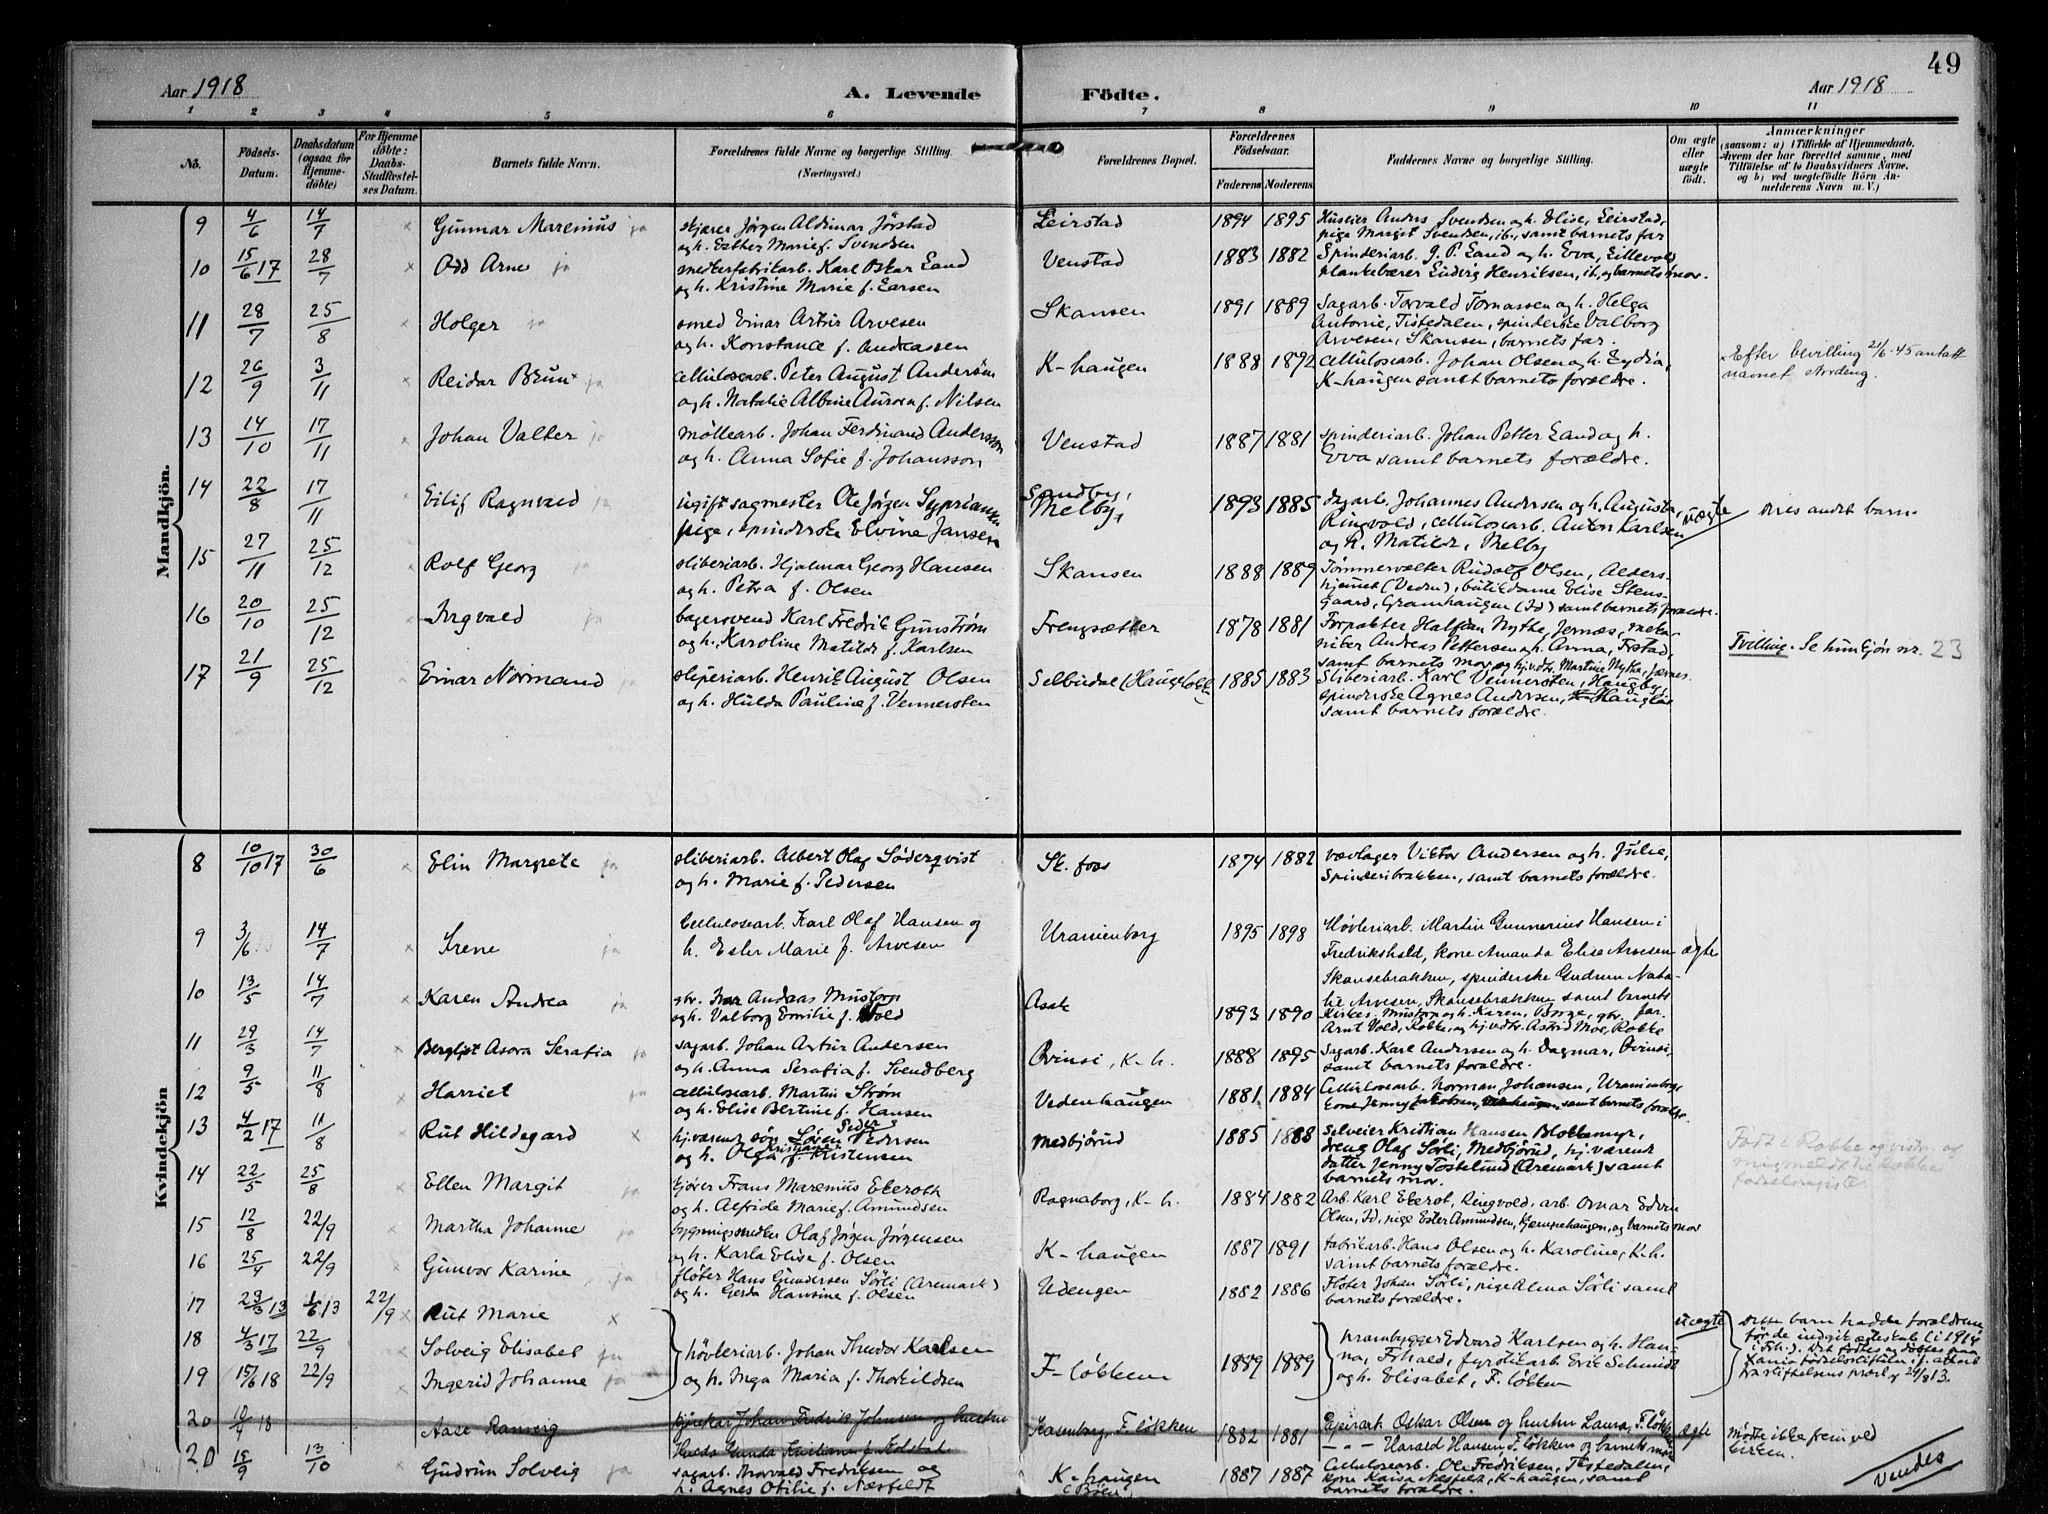 49
Aar 1918
A. Levende Födte.
Aar 1918
1 2 3 4 5 6 7 8 9 10 11
No.
Födsels-Datum.
Daabsdatum (ogsaa for Hjemmedöbte)
For Hjemmedöbte: Daabs-Stadfæstelses Datum.
Barnets fulde Navn.
Forældrenes fulde Navne og borgerlige Stilling. (Næringsvei.)
Forældrenes Bopæl.
Forældrenes Födselsaar.
Faderens Moderens
Faddernes Navne og borgerlige Stilling.
Om ægte eller uægte födt.
Anmærkninger
(saasom: a) i Tilfælde af Hjemmedaab, hvem der har forrettet samme, med Tilföielse af to Daabsvidners Navne, og b) ved uægtefödte Börn Anmelderens Navn m. V.)
Mandkjön.
9 4/6 14/7 Gunnar Marenius ja
skjører Jørgen Aldimar Jørstad
og h. Esther Marie f. Svendsen
Leirstad 1894 1895
Huseier Anders Svendsen og h. Elise, Leirstad,
pige Margit Svendsen, ib., samt barnets far
10 15/6 17 28/7 Odd Arne ja
Karl Oskar Land
og h. Kristine Marie f. Larsen
Venstad 1883 1882
Spinderiarb. J. P. Land og h. Eva, Lillevold
plankebærer Ludvig Henriksen, ib, og barnets mor.
11 28/7 25/8 Holger ja
smed Einar Artur Arvesen
og h. Konstance f. Andreassen
Skansen 1891 1889
Sagarb. Torvald Tomassen og h. Helga
Antonie, Tistedalen, spinderske Valborg
Arvesen, Skansen, barnets far.
12 26/9 3/11 Reidar Brun× ja
cellulosearb. Peter August Andersön
og h. Natalie Albine Aurora f. Nilsen
K-haugen 1888 1892
cellulosearb. Johan Olsen og h. Lydia,
K-haugen samt barnets forældre.
× Efter bevilling 2/6-45 antatt
navnet Nordeng.
13 14/10 17/11 Johan Valter ja
møllearb. Johan Ferdinand Andersson
og h. Anna Sofie f. Johansson
Venstad 1887 1881
spinderiarb. Johan Petter Land og h.
Eva samt barnets forældre.
14 22/8 17/11 Eilif Ragnvald ja
ugift sagmester Ole Jørgen Syprianssen
pige, spinderske Elvine Jansen
Sandby,
Melby, 1893 1885
sagarb. Johannes Andersen og h. Augusta,
Ringvold, cellulosearb. Anton Karlsen
og h. Matilde, Melby
uægte
15 27/11 25/12 Rolf Georg ja
sliberiarb. Hjalmar Georg Hansen
og h. Petra f. Olsen
Skansen 1888 1889
Tømmervælter Rudolf Olsen, Alders-
hjemmet (Veden), butikdame Elise Stens-
gaard, Gramhaugen (Id) samt barnets forældre.
16 20/10 25/12 Ingvald ja
bagersvend Karl Fredrik Gunstrøm
og h. Karoline Matilde f. Karlsen
Frengsætter 1878 1881
Forpakter Halfdan Nythe, Jernæs,
Andreas Pettersen og h. Anna,
samt barnets mor og hj.v.dtr. Martine Nythe, Jernes
Tvilling. Se hunkjøn nr. 23
17 21/9 25/12 Einar Normand ja
sliperiarb. Henrik August Olsen
og h. Hulda Pauline f. Vennersten
Selbudal (Haugelökk) 1885 1883
Sliberiarb. Karl Vennersten, Haugby,
spinderske Agnes Andersen,
samt barnets forældre.
Kvindekjön
8 10/10 17 30/6 Elin Margrete ja
sliberiarb. Albert Olaf Söderqvist
og h. Marie f. Pedersen
Sk. foss 1874 1882
vævlager Viktor Andersen og h. Julie,
Spinderibrakken, samt barnets forældre.
9 3/6 14/7 Irene ja
Cellulosearb. Karl Olaf Hansen og
h. Ester Marie f. Arvesen
Uranienborg 1895 1898
Høvleriarb. Martin Gunnerius Hansen i
Fredrikshald, kone Amanda Elise Arvesen
Skansebrakken, spinderske Gudrun Nata-
lie Arvesen, Skansebrakken samt barnets
far.
ægte
10 13/5 14/7 Karen Andrea ja
gbr. Ivar Andreas Mustorp
og h. Valborg Emilie f. Vold
Asak 1893 1890
Mustorp og h. Karen, Berge, gbr.
Arnt Vold, Rokke, og hj.v.dtr. Astrid Moe, Rokke
11 29/3 14/7 Bergljot Asora Serafia ja
sagarb. Johan Artur Andersen
og h. Anna Serafia f. Svendberg
Ovinsi, K-h. 1888 1895
Sagarb. Karl Andersen og h. Dagmar, Ovinsi,
samt barnets forældre.
12 9/5 11/8 Harriet
cellulosearb. Martin Strøm
og h. Elise Bertine f. Hansen
Vedenhaugen 1881 1884
Cellulosearb. Norman Johansen, Uranienborg,
samt barnets forældre.
13 4/2 17 11/8 Rut Hildegard ×
hj.værende søn Søren Peder Pedersen
og h. Olga Kristiane f. Kristensen
Medbjørud 1885 1888
selveier Kristian Hansen Blokkemyr,
dreng Olaf Sörli, Medbjörud, hj.værende
datter Jenny Toskelund (Aremark) samt
barnets mor.
Født i Rokke
14 22/5 25/8 Ellen Margit ja
kjører Frans Marenius Ekeroth
og h. Alfride Marie f. Amundsen
Ragnaborg, K-h. 1884 1882
Arb. Karl Ekerot, Ringvold, arb. Omar Edvin
Olsen, Id, pige Ester Amundsen, Kjempehaugen, og barnets mor
15 12/8 22/9 Martha Johanne ja
bygningssneker Olaf Jørgen Jørgensen
og h. Karla Elise f. Olsen
K-haugen 1887 1891
fabrikarb. Hans Olsen og h. Karoline, K.h.
samt barnets forældre.
16 25/4 22/9 Gunvor Karine ja
fløter Hans Gundersen Sörli (Aremark)
og h. Gerda Hansine f. Olsen
Udengen 1882 1886
Fløter Johan Sörli, pige Alma Sörli samt
barnets forældre.
17 23/3 13 1/6 13 22/9 Rut Marie ×
18 4/3 17 22/9 Solveig Elisabet ja
19 15/6 18 22/9 Ingerid Johanne ja
høvleriarb. Johan Theodor Karlsen
og h. Inga Maria f. Thorkildsen
F-løkken 1889 1889
Edvard Karlsen og h. Han-
na, F.hald, fyrstikarb. Erik Schmidt
og h. Elisabet, F. løkken
uægte
Dette barn hadde forældrene
før de indgik ægteskab i 1914
20 10/4 18 Aase Ranveig
Johan Fredrik Johnsen og hustru
Hulda Gunda Kristiane f. Kolstad
Rosenborg, F. løkken 1882 1881
Oskar Olsen og hustru Laura, F. løkken
—"— Harald Hansen F. løkken og barnets mor
ægte
Mødte ikke frem ved
kirken.
20 15/9 13/10 Gudrun Solveig ja
sagarb. Thorvald Fredriksen og
h. Agnes Otilie f. Næsfeldt
K-haugen 1887 1887
Cellulosearb. Ole Fredriksen, Tistedalen,
kone Kaisa Nesfeldt, K-haugen, samt
barnets forældre.
Vendes